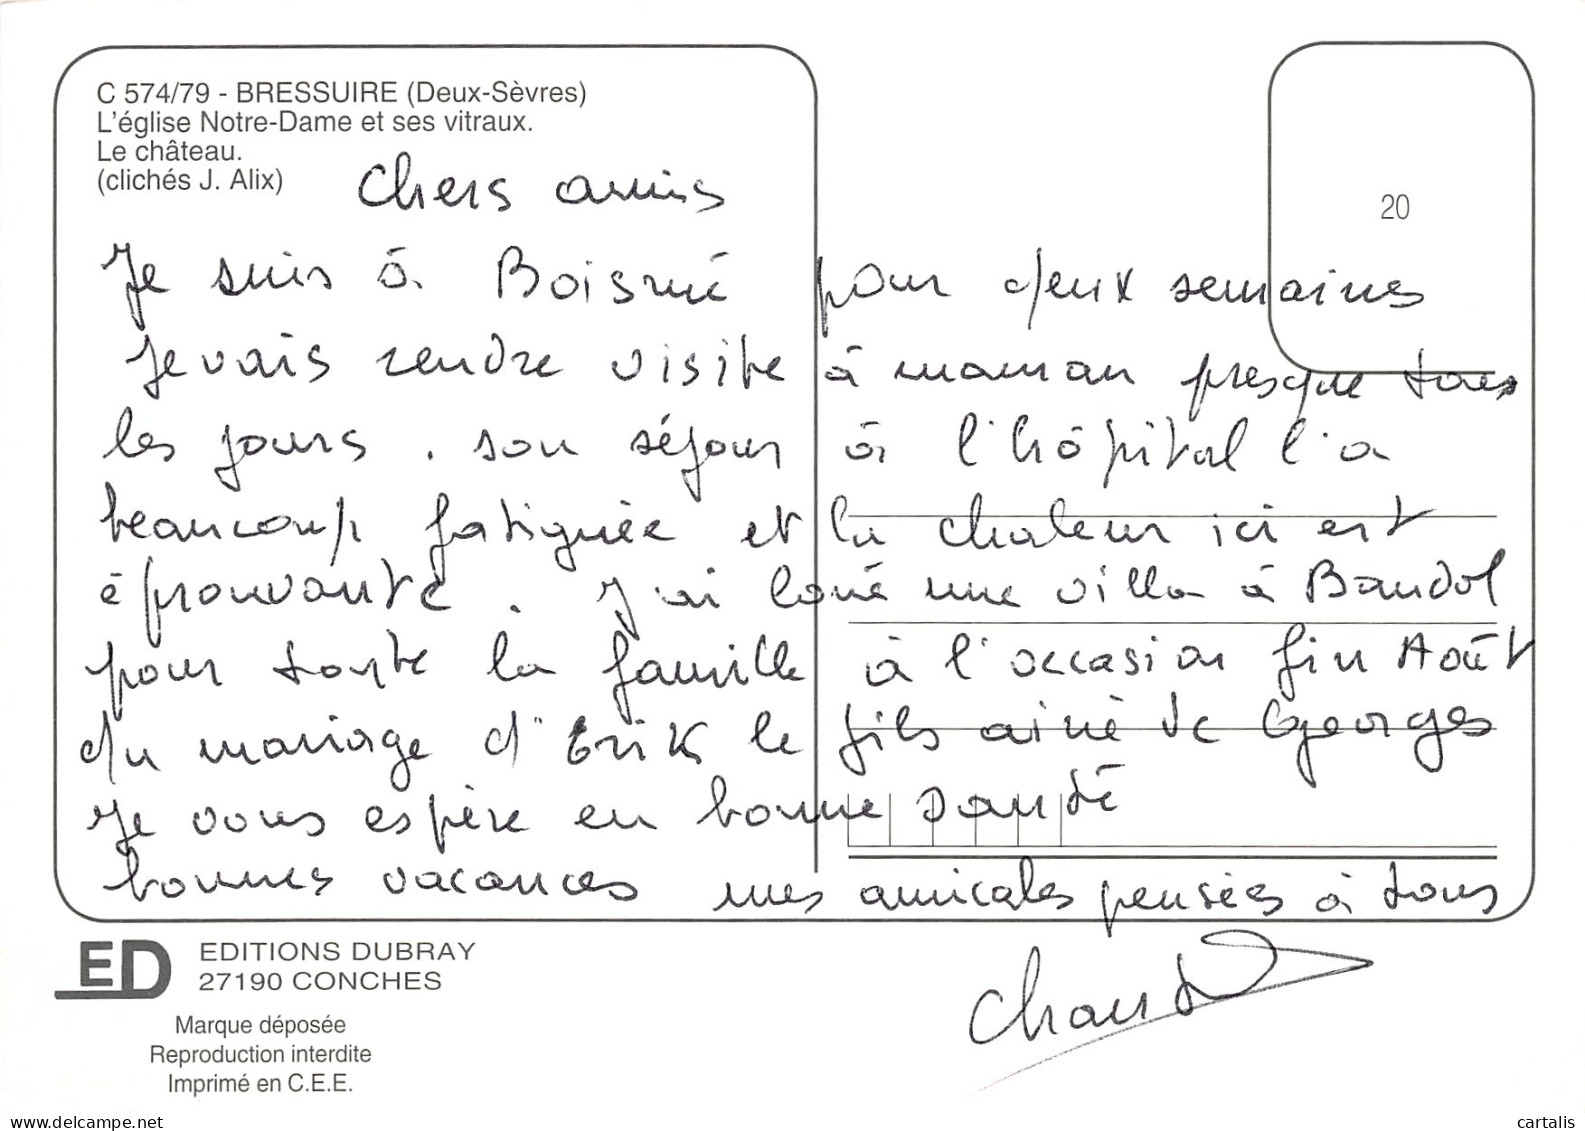 C 574/79 - BRESSUIRE (Deux-Sèvres)
L'église Notre-Dame et ses vitraux.
Le château.
(clichés J. Alix)
20
Chers amis
Je suis à Boismé pour deux semaines
Je vais rendre visite à maman presque tous
les jours. son séjour à l'hôpital l'a
beaucoup fatiguée et la chaleur ici est
éprouvante. J'ai loué une villa à Bandol
pour toute la famille à l'occasion fin Août
du mariage d'Erik le fils ainé de Georges
Je vous espère en bonne santé
bonnes vacances mes amicales pensées à tous
ED
EDITIONS DUBRAY
27190 CONCHES
Marque déposée
Reproduction interdite
Imprimé en C.E.E.
www.delcampe.net
cartalis